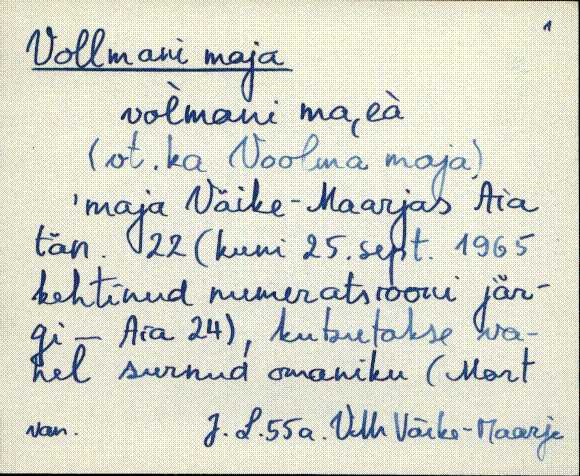 1
Vollmani maja
vol̀mani ma,eà
(vt. ka Voolma maja)
'maja Väike-Maarjas Aia
tän. 22 (kuni 25. sept. 1965
kehtinud numeratsiooni jär-
gi — Aia 24), kutsutakse va-
hel surnud omaniku (Mart
van. J. L. 55a. VMr Väike-Maarja